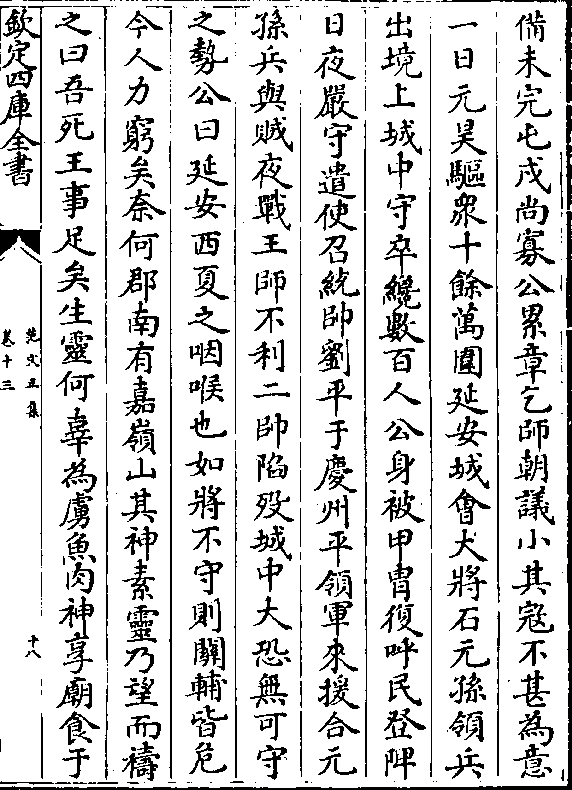 備未完屯戍尚寡公累章乞師朝議小其寇不甚為意
一日元昊驅衆十餘萬圍延安城會大將石元孫領兵
出境上城中守卒纔數百人公身被甲冑復呼民登陴
日夜嚴守遣使召統帥劉平于慶州平領軍來援合元
孫兵與賊夜戰王師不利二帥陷歿城中大恐無可守
之勢公曰延安西夏之咽喉也如將不守則關輔皆危
今人力窮矣奈何郡南有嘉嶺山其神素靈乃望而禱
之曰吾死王事足矣生靈何辜為虜魚肉神享廟食于
欽定四庫全書
范文正集
卷十三
十八